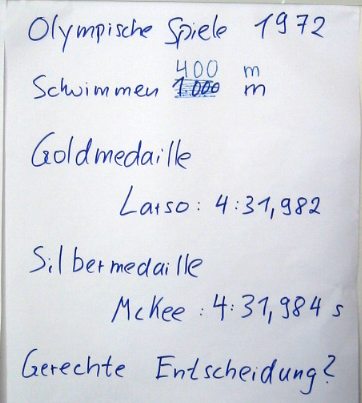 Olympische Spiele 1972
400 m
Schwimmen 1000 m
Goldmedaille
Larso: 4:31,982
Silbermedaille
McKee: 4:31,984 s
Gerechte Entscheidung?